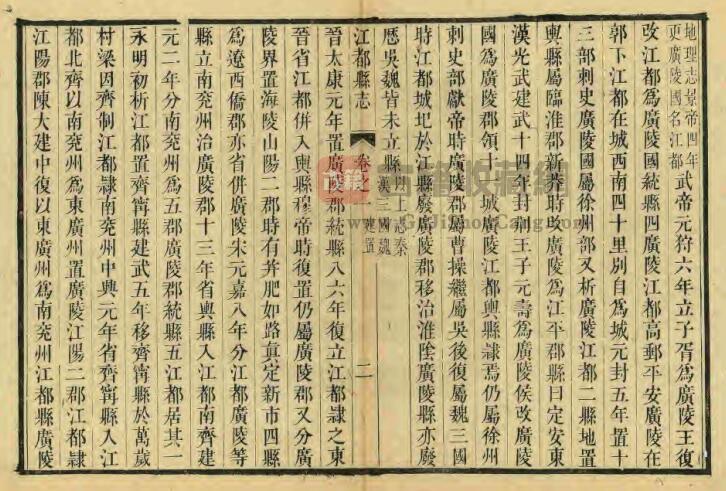 地理志景帝四年
更廣陵國名江都
武帝元狩六年立子胥為廣陵王復
改江都為廣陵國統縣四廣陵江都高郵平安廣陵在
郭下江都在城西南四十里別自為城元封五年置十
三部刺史廣陵國屬徐州部又析廣陵江都二縣地置
輿縣屬臨淮郡新莽時改廣陵為江平郡縣曰定安東
漢光武建武十四年封荆王子元壽為廣陵侯改廣陵
國為廣陵郡領十一城廣陵江都輿縣隷焉仍屬徐州
刺史部獻帝時廣陵郡屬曹操繼屬吳後復屬魏三國
時江都城圮於江縣廢廣陵郡移治淮陰廣陵縣亦廢
歷吳魏皆未立縣
以上志秦
漢三國魏
江都縣志
卷之一
建置
二
晉太康元年置廣陵郡統縣八六年復立江都隷之東
晉省江都併入輿縣穆帝時復置仍屬廣陵郡又分廣
陵界置海陵山陽二郡時有并肥如路真定新市四縣
為遼西僑郡亦省併廣陵宋元嘉八年分江都廣陵等
縣立南兖州治廣陵郡十三年省輿縣入江都南齊建
元二年分南兖州為五郡廣陵郡統縣五江都居其一
永明初析江都置齊寧縣建武五年移齊寧縣於萬歲
村梁因齊制江都隷南兖州中興元年省齊寧縣入江
都北齊以南兖州為東廣州置廣陵江陽二郡江都隷
江陽郡陳大建中復以東廣州為南兖州江都縣廣陵
古籍收藏網
www.GuJiShouCang.com